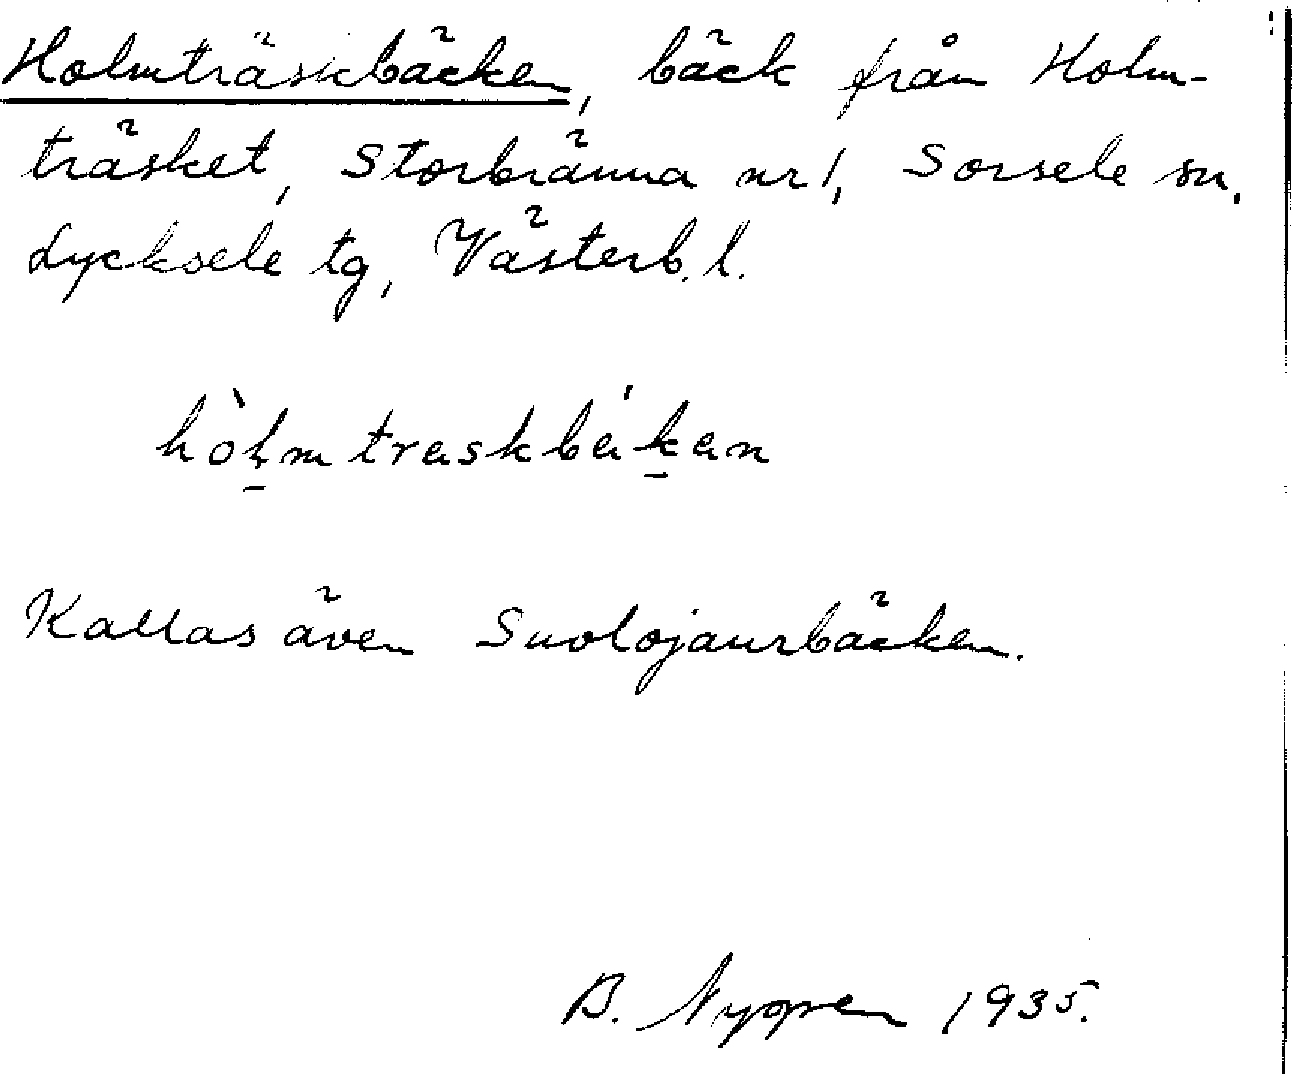 Holmträskbäcken, bäck från Holm-
träsket, Storbränna nr 1, Sorsele sn,
Lycksele tg, Västerb. l.
hòḷmtreskbékan
Kallas även Suolojaurbäcken.
B. Nyppen 1935.